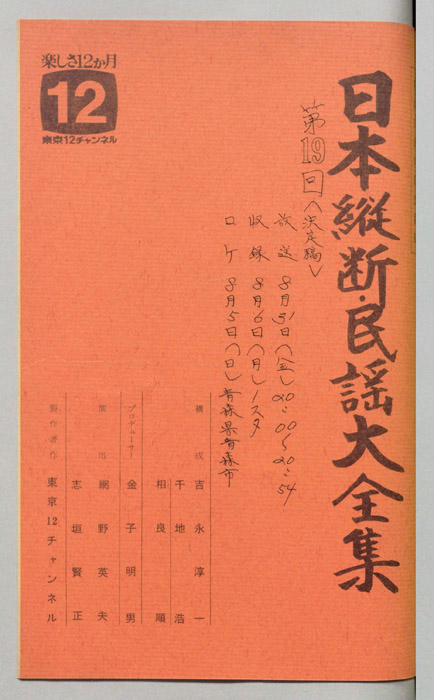 日本縦断・民謡大全集
楽しさ12か月
12
東京12チャンネル
第19回(決定稿)
放送 8月31日(金)20:00~20:54
収録 8月6日(月)1スタ
ロケ 8月5日(日)青森県青森市
構成 吉永淳一
千地浩
相良順
プロデューサー 金子明男
演出 網野英夫
志垣賢正
製作著作 東京12チャンネル